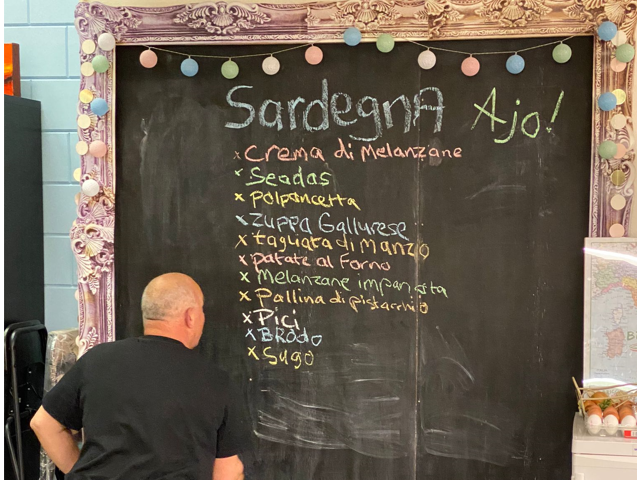 Sardegna Ajo!
x Crema di Melanzane
x Seadas
x Polpancetta
x Zuppa Gallurese
x tagliata di manzo
x Patate al Forno
x Melanzane impanata
x Pallina di pistacchio
x Pici
x BRodo
x Sugo